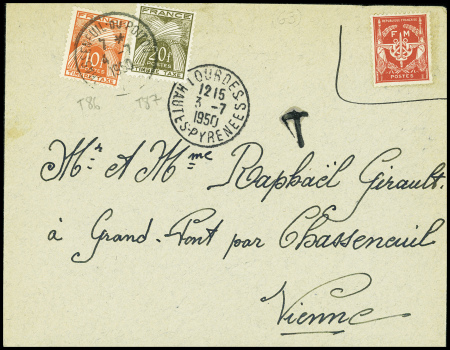 FRANCE
10F
TIMBRE TAXE
FRANCE
20F
TIMBRE TAXE
T86
T87
LOURDES
12 15
3 -7
1950
HAUTES-PYRENEES
RÉPUBLIQUE FRANÇAISE
F M
POSTES
T
Mr & Mme Raphaël Girault.
à Grand-Pont par Chasseneuil
Vienne